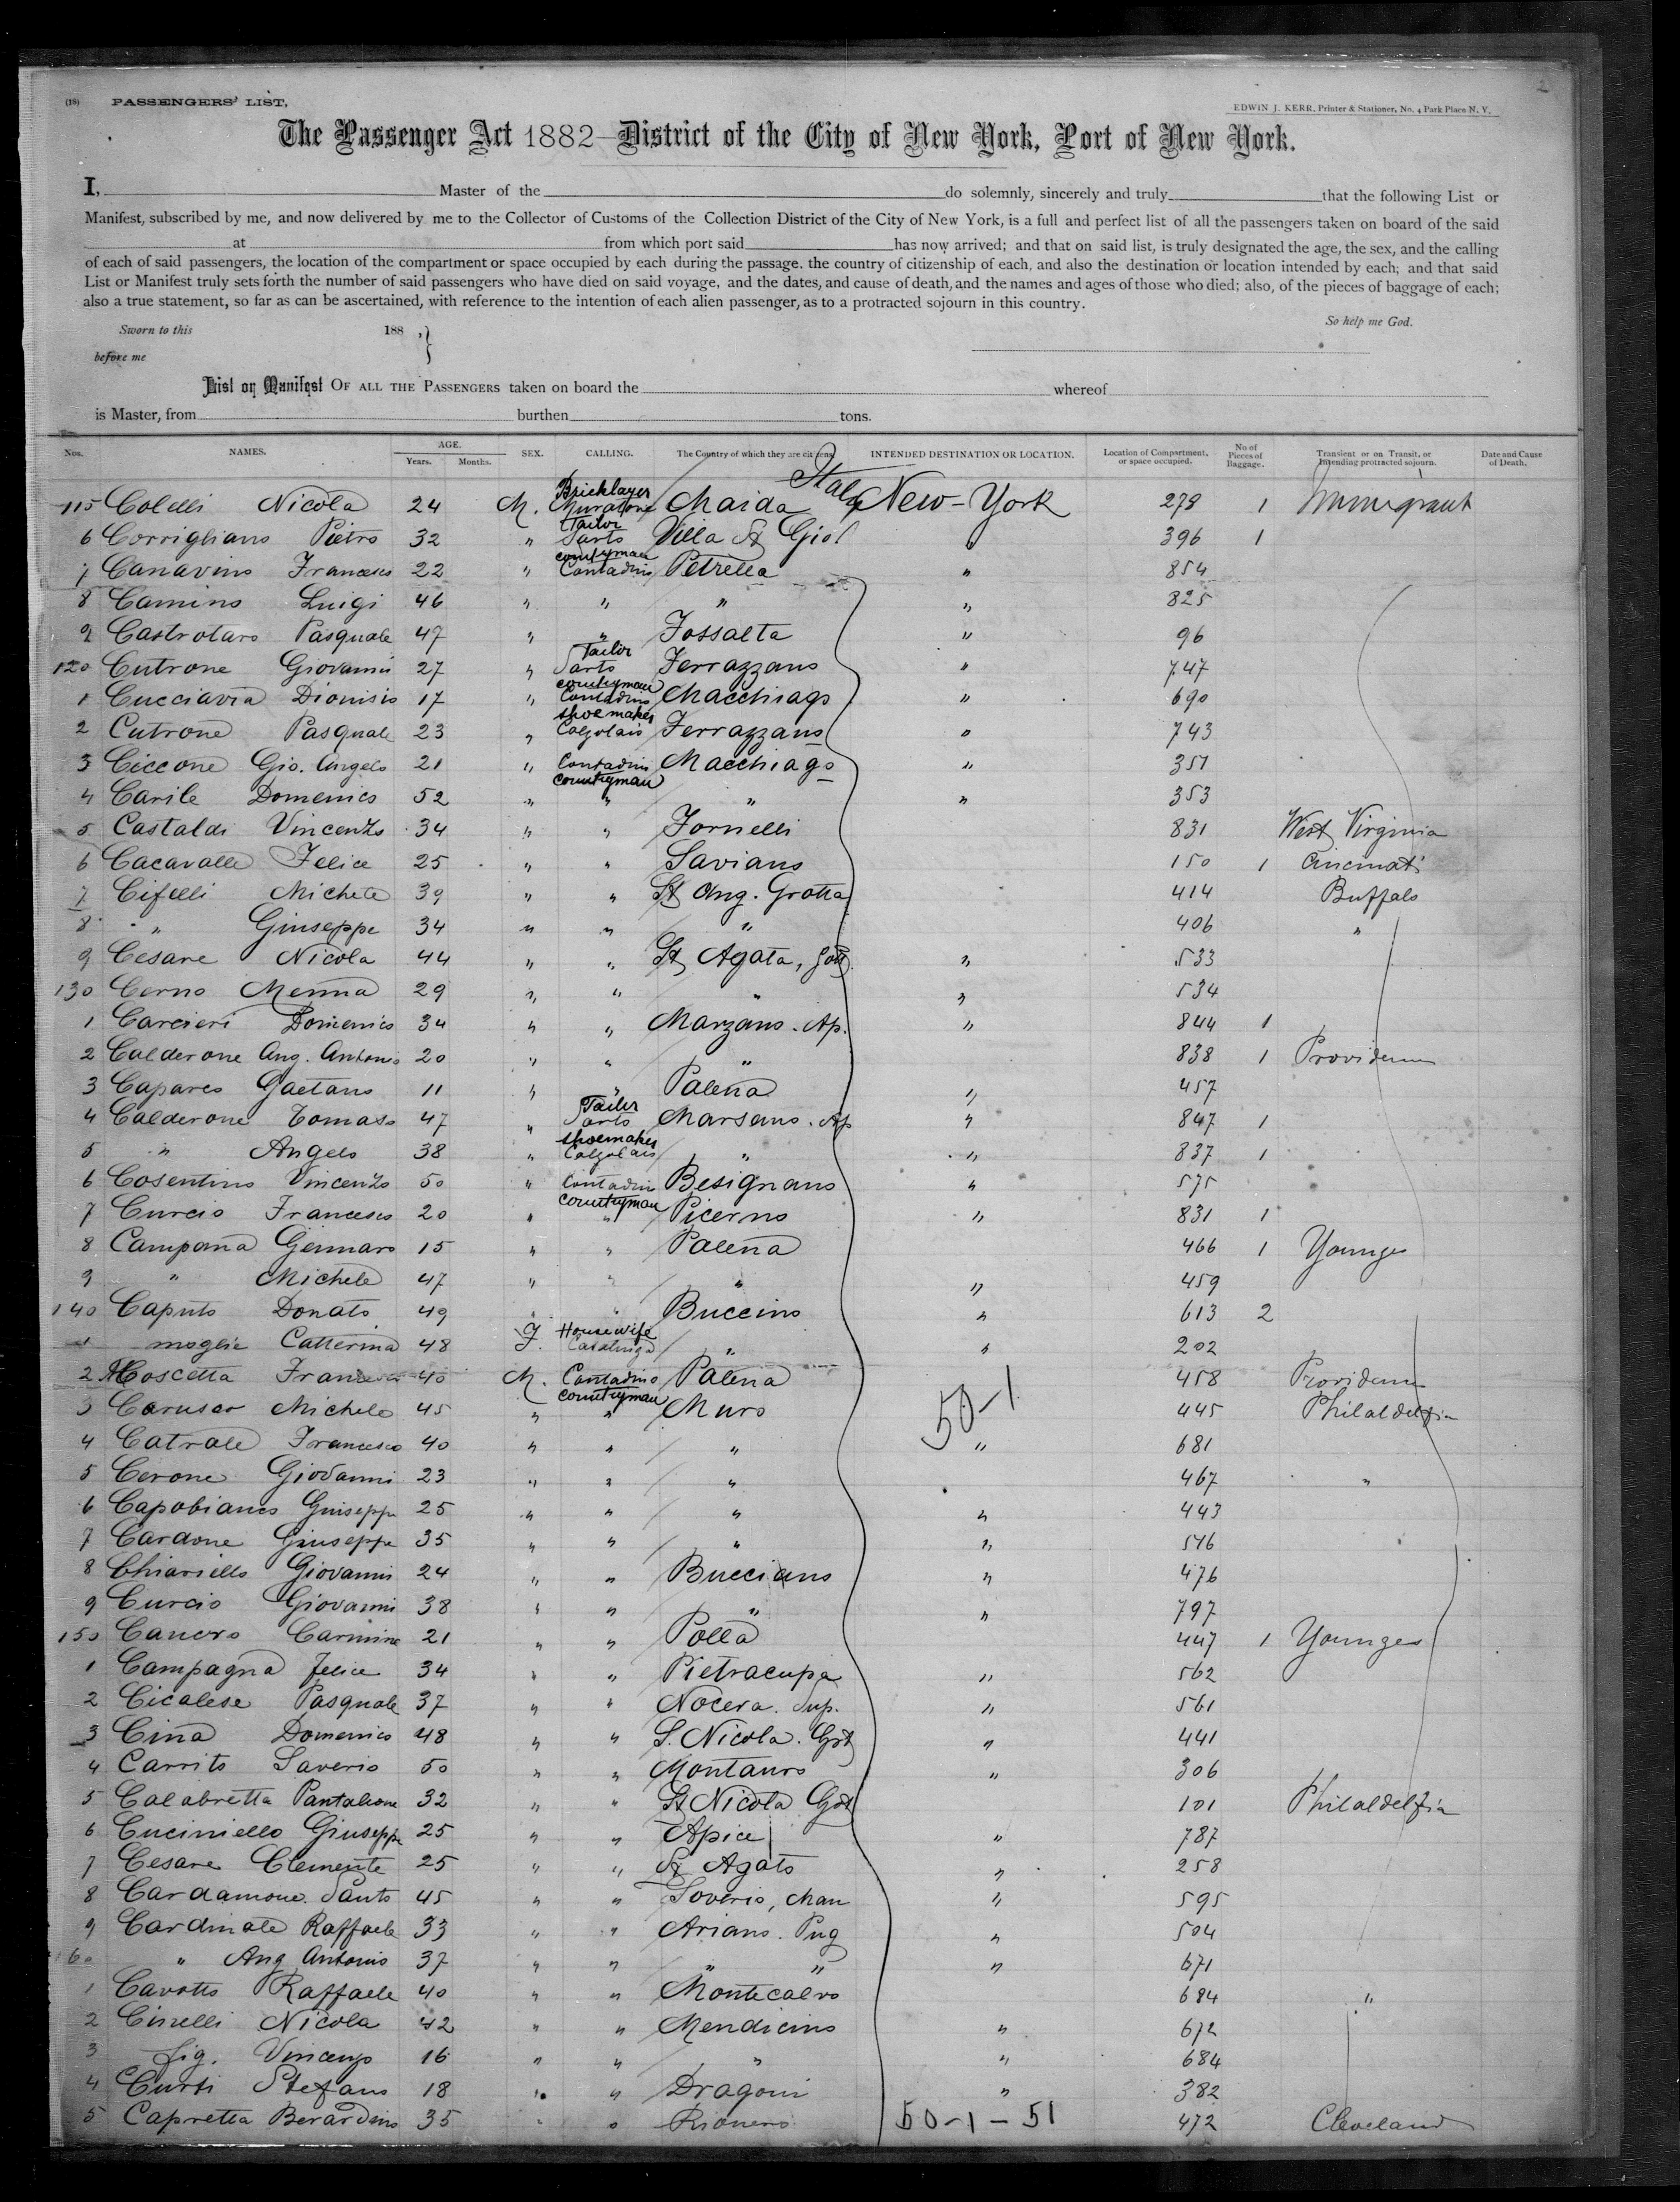 2
(18) PASSENGERS' LIST,
EDWIN J. KERR, Printer & Stationer, No. 4 Park Place N. Y.
The Passenger Act 1882—District of the City of New York, Port of New York.
I, Master of the do solemnly, sincerely and truly that the following List or
Manifest, subscribed by me, and now delivered by me to the Collector of Customs of the Collection District of the City of New York, is a full and perfect list of all the passengers taken on board of the said
at from which port said has now arrived; and that on said list, is truly designated the age, the sex, and the calling
of each of said passengers, the location of the compartment or space occupied by each during the passage. the country of citizenship of each, and also the destination or location intended by each; and that said
List or Manifest truly sets forth the number of said passengers who have died on said voyage, and the dates, and cause of death, and the names and ages of those who died; also, of the pieces of baggage of each;
also a true statement, so far as can be ascertained, with reference to the intention of each alien passenger, as to a protracted sojourn in this country.
Sworn to this 188 , } So help me God.
before me
List or Manifest OF ALL THE PASSENGERS taken on board the whereof
is Master, from burthen tons.
Nos. NAMES. AGE. Years. Months. SEX. CALLING. The Country of which they are citizens. INTENDED DESTINATION OR LOCATION. Location of Compartment, or space occupied. No of Pieces of Baggage. Transient or on Transit, or Intending protracted sojourn. Date and Cause of Death.
115 Colelli Nicola 24 M. Bricklayer Muratore Maida Italy New-York 278 1 Immigrant
6 Corrigliano Pietro 32 " Tailor Sarto Villa St Gio! " 396 1
7 Canavino Francesco 22 " countyman Contadino Petrella " 854
8 Camino Luigi 46 " " " " 825
9 Castrotaro Pasquale 47 " " Fossalta " 96
120 Cutrone Giovanni 27 " Tailor Sarto Ferrazzano " 747
1 Cucciavia Dionisio 17 " countryman Contadino Macchiago " 690
2 Cutrone Pasquale 23 " shoemaker Calzolaio Ferrazzano " 743
3 Ciccone Gio. Angelo 21 " Contadino countryman Macchiago " 351
4 Carile Domenico 52 " " " " 353
5 Castaldi Vincenzo 34 " " Fornelli 831 West Virginia
6 Cacavalle Felice 25 " " Saviano 150 1 Cincinati
7 Cifelli Michele 39 " " St Ang. Grotta 414 Buffalo
8 " Giuseppe 34 " " " 406 "
9 Cesare Nicola 44 " " St Agata, Got " 533
130 Cerno Menna 29 " " " " 534
1 Carcieri Domenico 34 " " Marzano. Ap. " 844 1
2 Calderone Ang. Antonio 20 " " " 838 1 Providence
3 Caparco Gaetano 11 " " Palena " 457
4 Calderone Tomaso 47 " Tailor Sarto Marsano. Ap " 847 1
5 " Angelo 38 " shoemaker Calzolaio " " 837 1
6 Cosentino Vincenzo 50 " Contadin countryman Besignano " 575
7 Curcio Francesco 20 " " Picerno " 831 1
8 Campana Gennaro 15 " " Palena 466 1 Younges
9 " Michele 47 " " " " 459
140 Caputo Donato 49 " " Buccino " 613 2
1 moglie Catterina 48 F. Housewife Casalinga " " 202
2 Moscetta 40 M. Contadino countryman Palena 458 Providence
3 Caruso Michele 45 " " Muro 50-1 445 Philaldelfia
4 Catrale Francesco 40 " " " " 681
5 Cerone Giovanni 23 " " " 467 "
6 Capobianco Giuseppe 25 " " " " 443
7 Cardone Giuseppe 35 " " " " 546
8 Chiariello Giovanni 24 " " Bucciano " 476
9 Curcio Giovanni 38 " " " " 797
150 Canoro Carmine 21 " " Polla 447 1 Younges
1 Campagna Felice 34 " " Pietracupa " 562
2 Cicalese Pasquale 37 " " Nocera. Sup. " 561
3 Cina Domenico 48 " " S. Nicola. Got " 441
4 Carrito Saverio 50 " " Montauro " 306
5 Calabretta Pantaleone 32 " " St Nicola Got 101 Philaldelfia
6 Cuciniello Giuseppe 25 " " Apice " 787
7 Cesare Clemente 25 " " St Agato " 258
8 Cardamone Santo 45 " " Soverio, Man " 595
9 Cardinale Raffaele 33 " " Ariano. Pug " 504
60 " Ang Antonio 37 " " " " " 671
1 Cavotto Raffaele 40 " " Montecalvo 684 "
2 Cinelli Nicola 42 " " Mendicino " 672
3 fig. Vincenzo 16 " " " " 684
4 Curti Stefano 18 " " Dragoni " 382
5 Capretta Berardino 35 " " Rionero 50-1-51 472 Cleveland